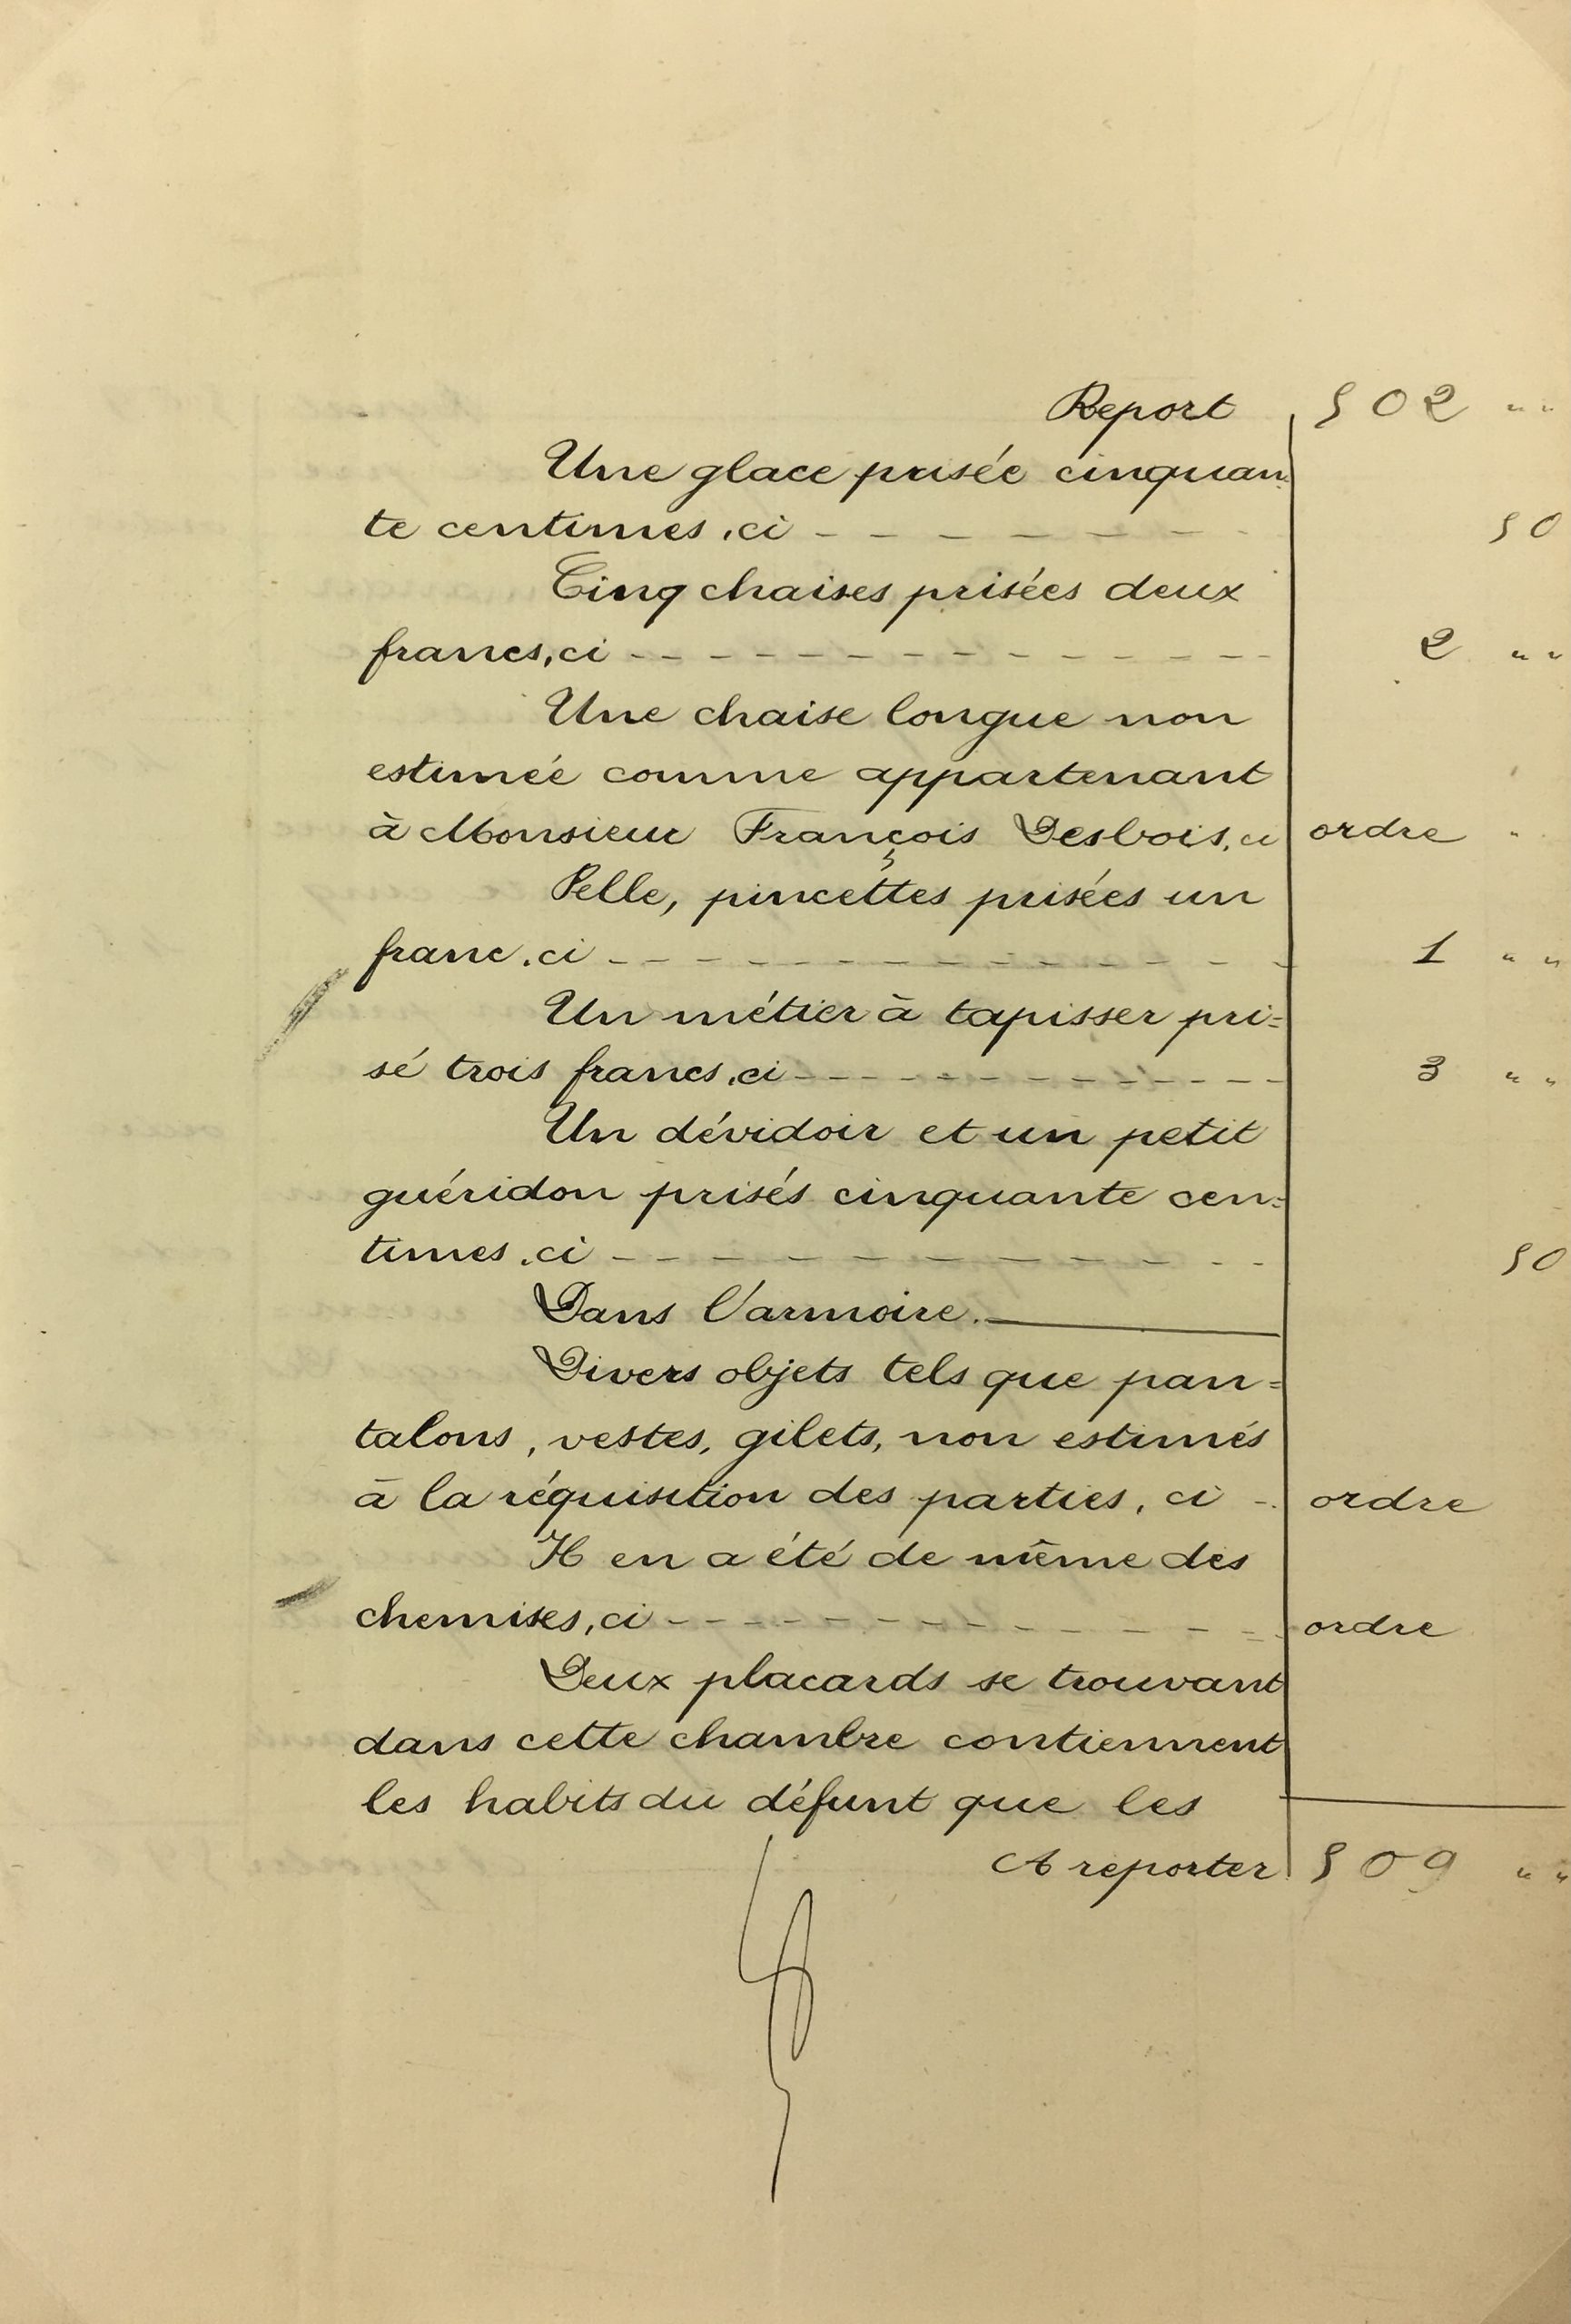 Report 502 " "
Une glace prisée cinquan
te centimes, ci - - - - - - - - 50
Cinq chaises prisées deux
francs, ci - - - - - - - - - - - - - - 2 " "
Une chaise longue non
estimée comme appartenant
à Monsieur François Desbois, ci ordre "
Pelle, pincettes prisées un
franc, ci - - - - - - - - - - - - - - 1 " "
Un métier à tapisser pri=
sé trois francs, ci - - - - - - - - - - - - 3 " "
Un dévidoir et un petit
guéridon prisés cinquante cen=
times, ci - - - - - - - - - - - - 50
Dans l'armoire.
Divers objets tels que pan=
talons, vestes, gilets, non estimés
à la réquisition des parties, ci - - ordre
Il en a été de même des
chemises, ci - - - - - - - - - - - - ordre
Deux placards se trouvant
dans cette chambre contiennent
les habits du défunt que les
A reporter 509 " "